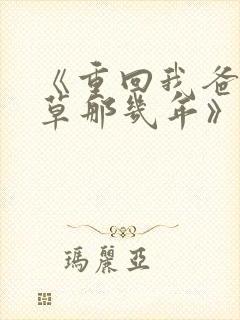 《重回我爸
草那幾年》
瑪麗亞